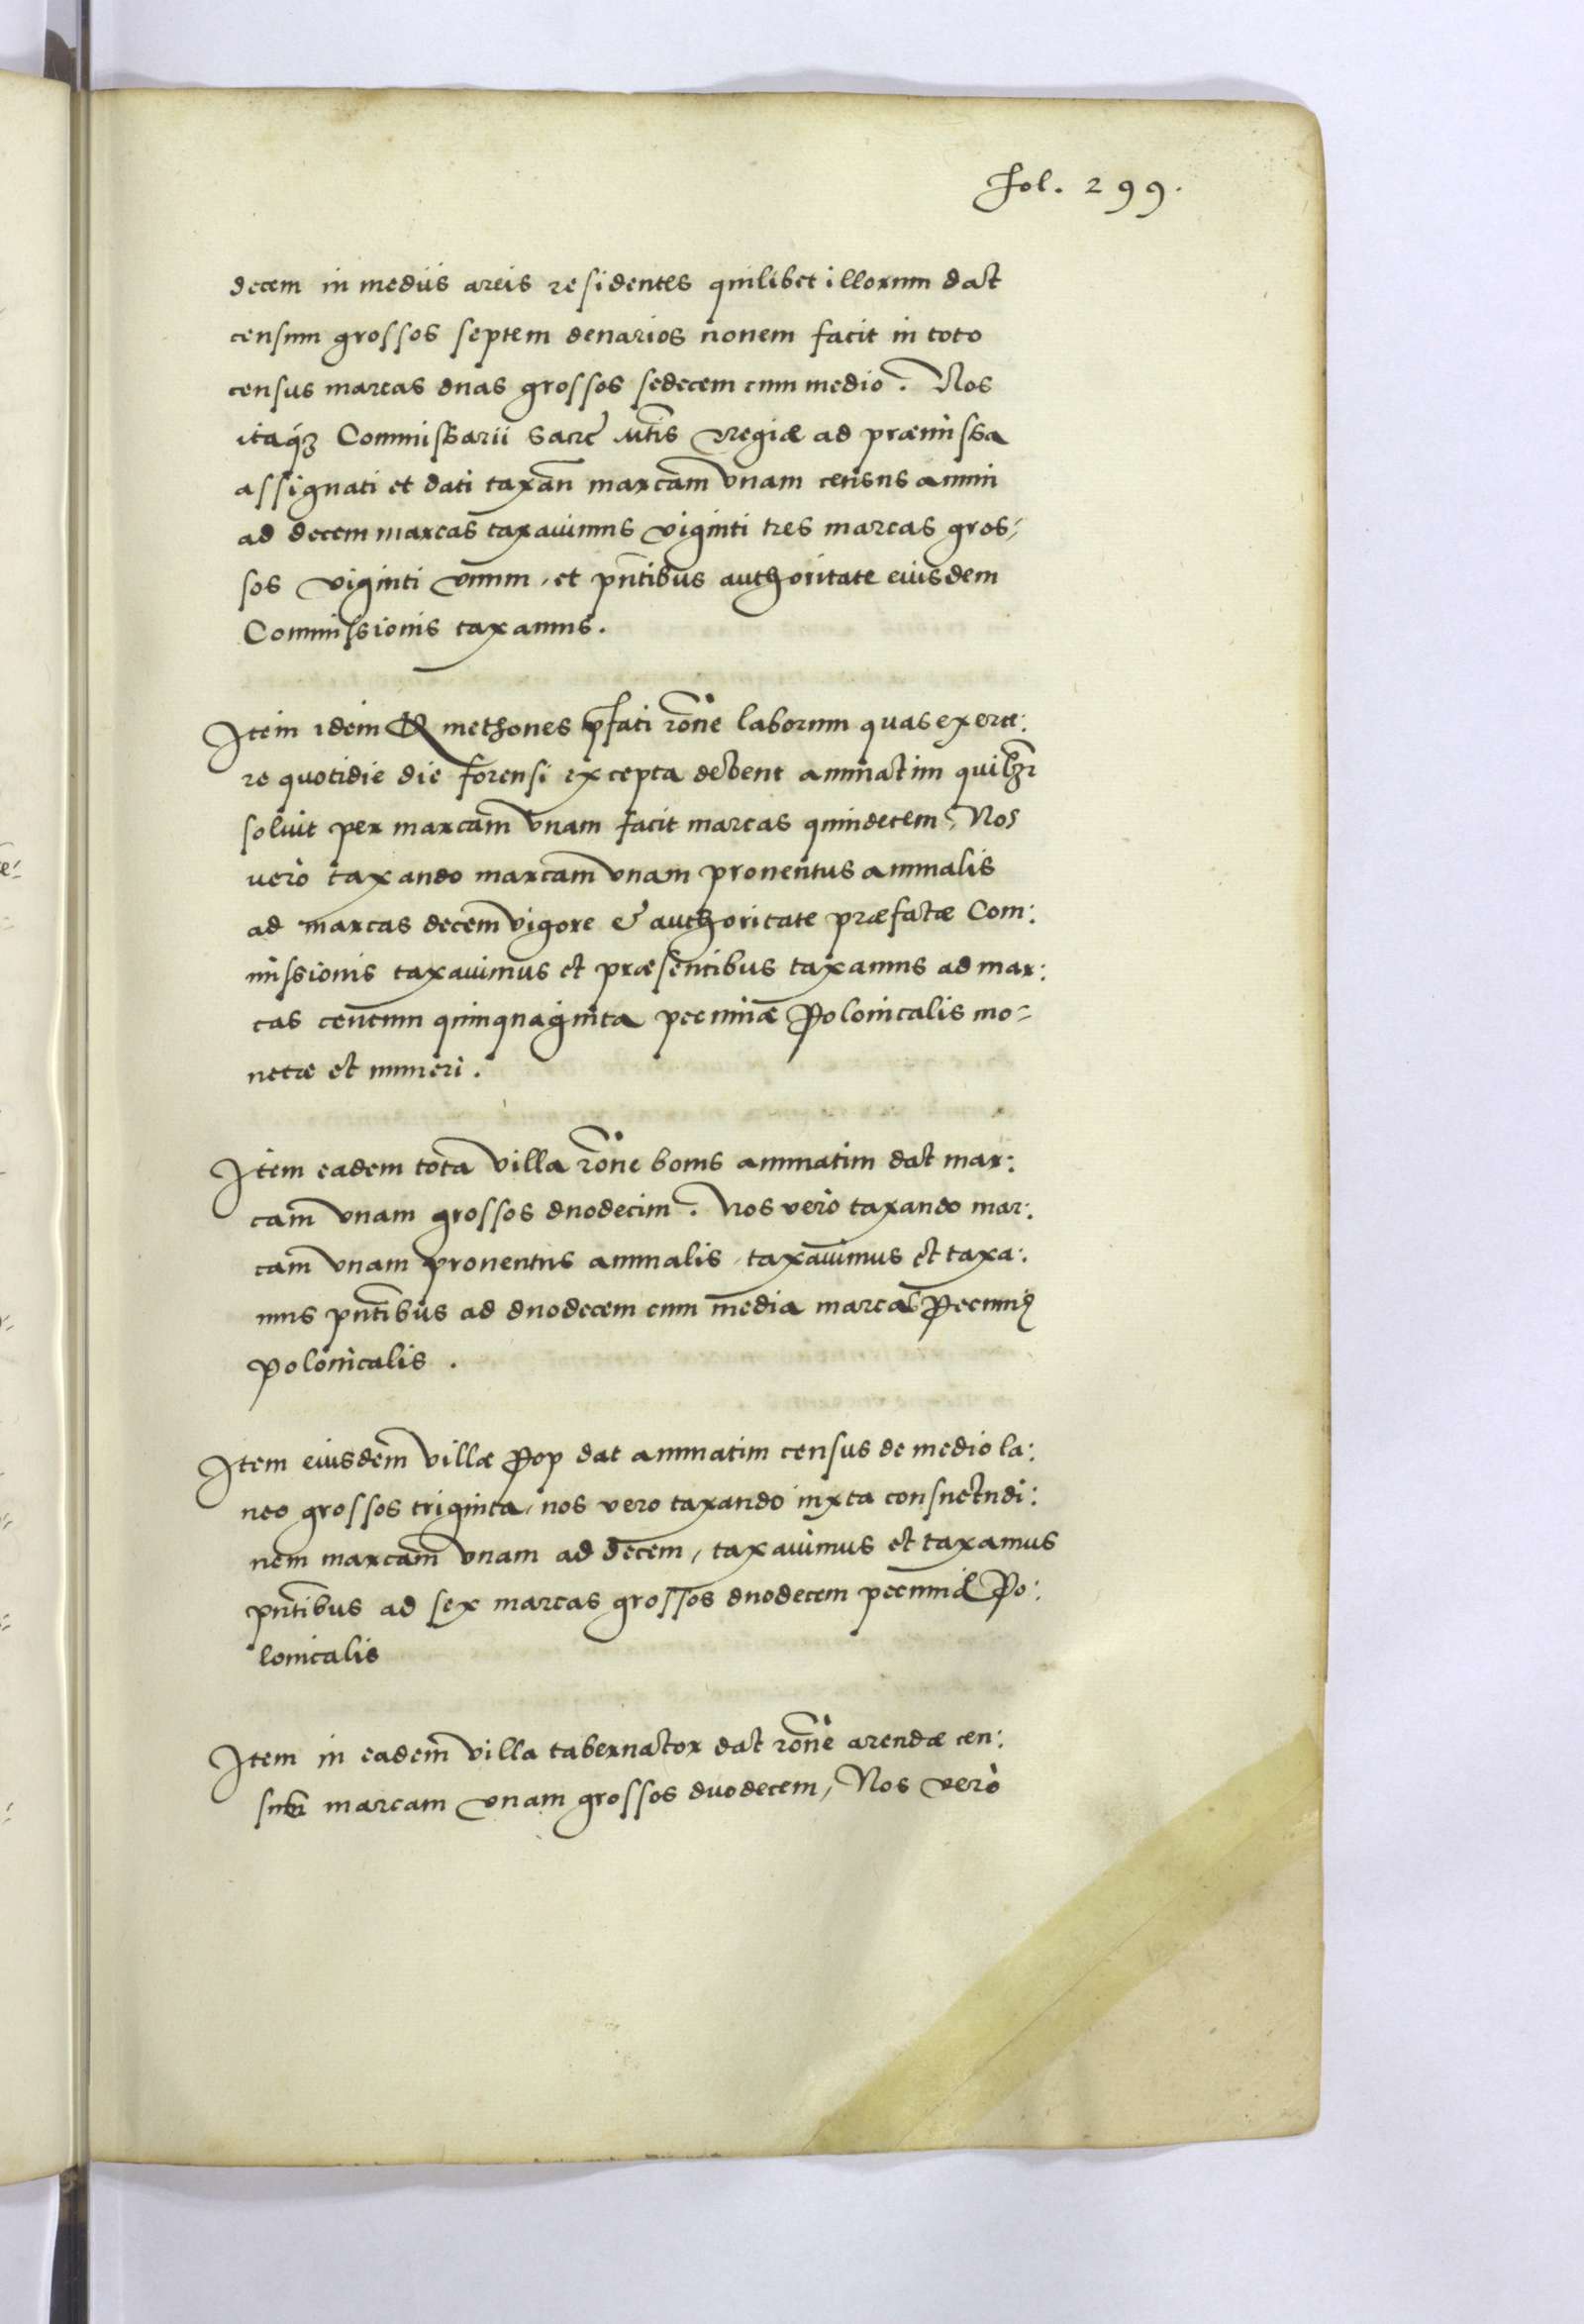 fol. 299.
decem in mediis areis residentes quilibet illorum dat
censum grossos septem denarios nouem facit in toto
census marcas duas grossos sedecem cum medio. Nos
itaq3 Commissarii Sacrę Mtis Regiæ ad præmissa
assignati et dati taxan marcam vnam census annui
ad decem marcas taxauimus viginti tres marcas gros-
sos viginti vnum, et pntibus authoritate eiusdem
Commissionis taxamus.
Item idem methones pfati rone laborum quas exerce:
re quotidie die forensi excepta debent annuatim quilzr
soluit per marcam vnam facit marcas quindecem, Nos
uerò taxando marcam vnam prouentus annualis
ad marcas decem vigore & authoritate præfatæ Com:
missionis taxauimus et præsentibus taxamus ad mar:
cas centum quinquaginta pecuniæ Polonicalis mo=
netæ et numeri.
Item eadem tota villa rone bouis annuatim dat mar:
cam vnam grossos duodecim. Nos verò taxando mar:
cam vnam prouentus annualis, taxauimus et taxa:
mus pntibus ad duodecem cum media marcas Pecunię
polonicalis.
Item eiusdem villæ Pop dat annuatim census de medio la:
neo grossos triginta, nos vero taxando iuxta consuetudi:
nem marcam vnam ad decem, taxauimus et taxamus
pntibus ad sex marcas grossos duodecem pecuniæ Po:
lonicalis
Item in eadem villa tabernator dat rone arendæ cen:
sum marcam vnam grossos duodecem, Nos verò